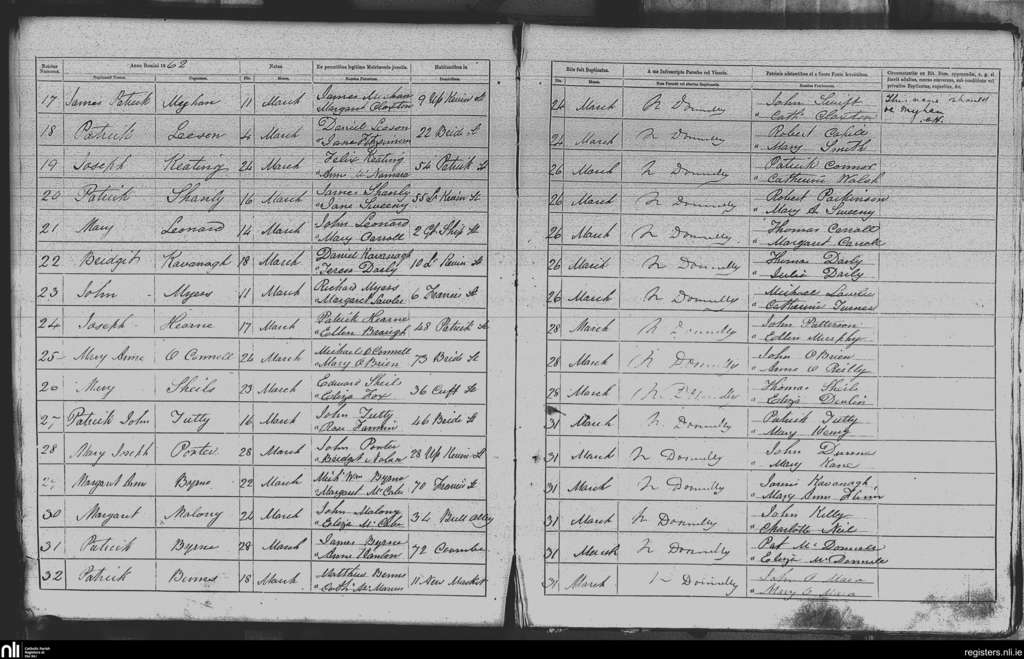 Anno Domini 1862
Natus
Ex parentibus legitimo Matrimonio junctis.
Habitantibus in
Die. Mensis.
17 James Patrick Meghan 11 March James Meehan 9 Up Kevin St
" Margaret Claxton
18 Patrick Leeson 4 March Daniel Leeson 22 Bride St
" Jane Fitzsimon
19 Joseph Keating 24 March Felix Keating 54 Patrick St
" Anne Mc Namara
20 Patrick Shanly 16 March James Shanly 55 Lr Kevin St
" Jane Sweeny
21 Mary Leonard 14 March John Leonard 2 Gt Ship St
" Mary Carroll
22 Bridget Kavanagh 18 March Daniel Kavanagh 10 Lr Kevin St
" Teresa Daily
23 John Myers 11 March Richard Myers 6 Francis St
" Margaret Lawler
24 Joseph Hearne 17 March Patrick Hearne 48 Patrick St
" Ellen
25 Mary Anne O Connell 24 March Michael O Connell 73 Bride St
" Mary O Brien
26 Mary Sheils 23 March Edward Sheils 36 Cuff St
" Eliza Fox
27 Patrick John Tutty 16 March John Tutty 46 Bride St
" Rose
28 Mary Joseph Porter 28 March John Porter 28 Up Kevin St
" Bridget Nolan
Margaret Anne Byrne 22 March Mich Wm Byrne 70 Francis St
" Margaret
30 Margaret Malony 24 March John Malony 34 Bull Alley
" Eliza
31 Patrick Byrne 28 March James Byrne 72 Coombe
" Anne Hanlon
32 Patrick Binns 18 March Matthew Binns 11 New Market
" Cath Mc Manus
Rite fuit Baptizatus.
A me Infrascripto Parocho vel Vicario.
Patrinis adstantibus et a Sacro Fonte levantibus.
24 March N Donnelly John Swift This name should
" Cath Claxton be Myhan
24 March N Donnelly Robert Cahill
" Mary Smith
26 March N Donnelly Patrick Connor
" Catherine Walsh
26 March N Donnelly Robert Parkinson
" Mary A Sweeny
26 March N Donnelly Thomas Carroll
" Margaret Carroll
26 March N Donnelly Thomas Daily
" Julia Daily
26 March N Donnelly Michael Lawler
" Catherine Turner
28 March N Donnelly John Patterson
" Ellen Murphy
28 March N Donnelly John O Brien
" Anne O Reilly
28 March N Donnelly Thomas Sheils
" Eliza
31 March N Donnelly Patrick Tutty
" Mary
31 March N Donnelly John Dunne
" Mary Kane
31 March N Donnelly James Kavanagh
" Mary Anne
31 March N Donnelly John Kelly
" Charlotte Neil
31 March N Donnelly Pat Mc Donnell
" Eliza Mc Donnell
31 March N Donnelly John O Mara
" Mary O Mara
nli Catholic Parish Registers at the NLI
registers.nli.ie